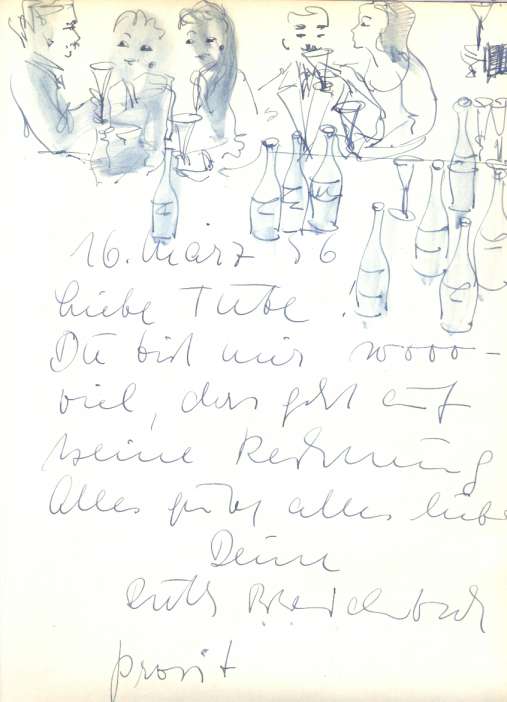 16. März 56
Liebe Tube !
Du bist mir soooo-
viel, das geht auf
keine Rechnung
Alles gute alles liebe
Deine
Ruth
prosit